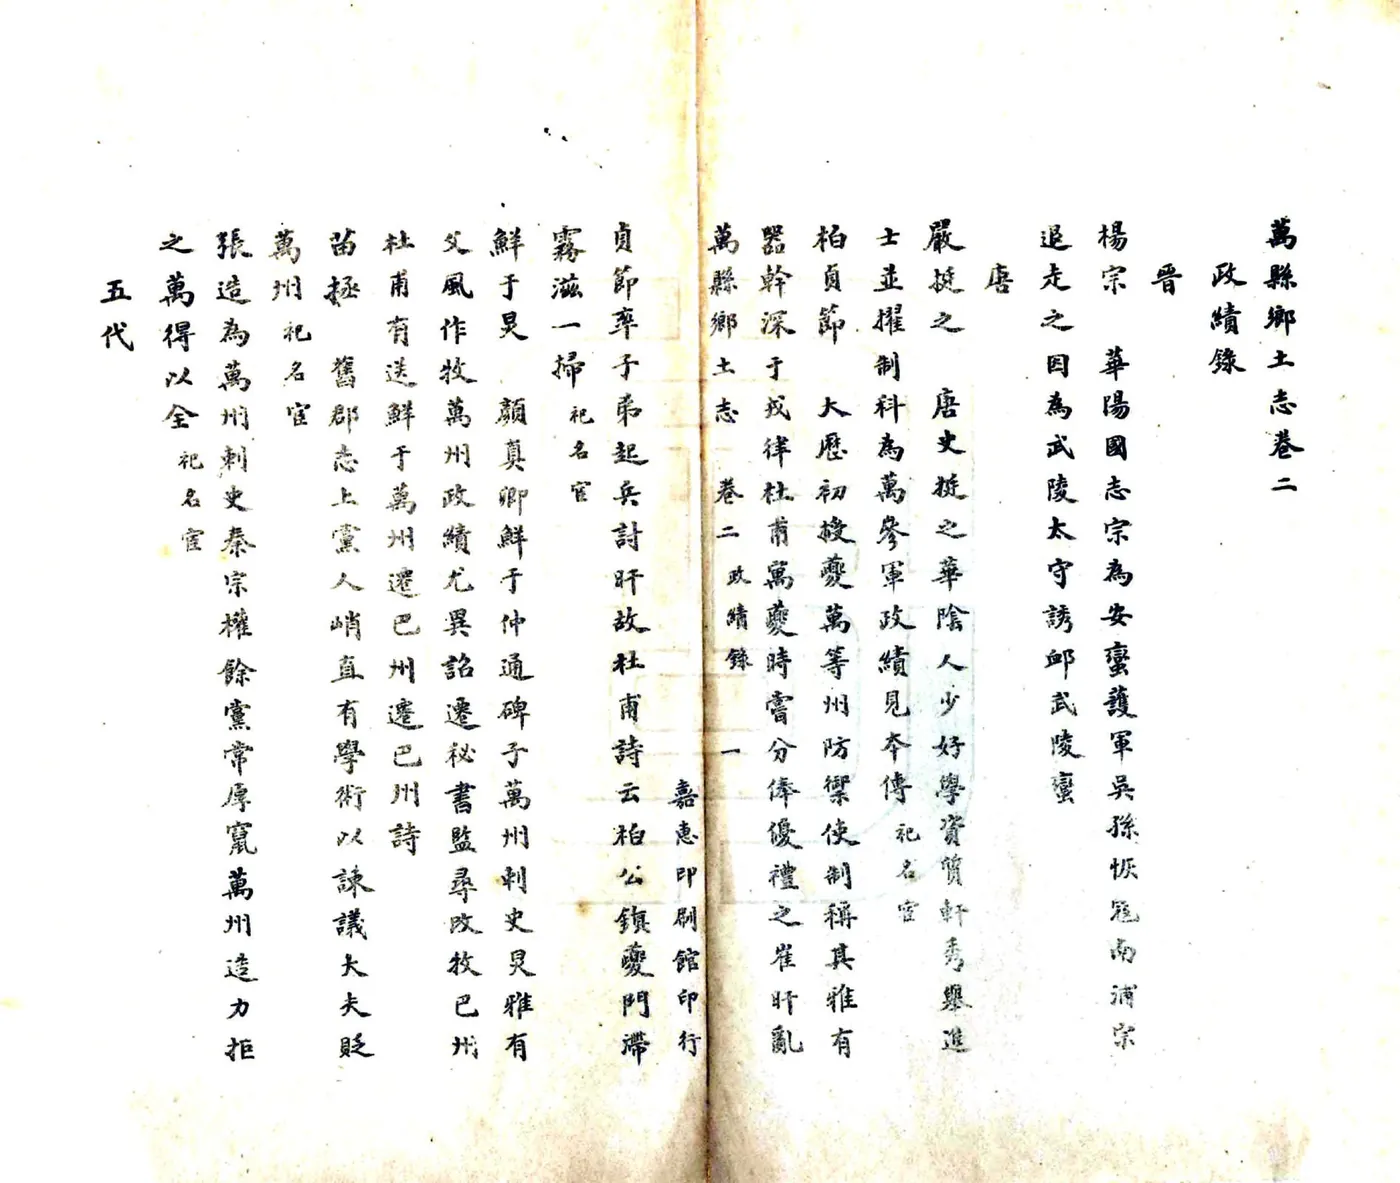 萬縣鄉土志卷二
政績錄
晉
楊宗　華陽國志宗為安蠻護軍吳孫恢冦南浦宗
退走之因為武陵太守誘邮武陵蠻
唐
嚴挺之　唐史挺之華陰人少好學資質軒秀舉進
士並擢制科為萬參軍政績見本傳祀名宦
柏貞節　大歷初授夔萬等州防禦使制稱其雅有
器幹深于戎律杜甫寓夔時嘗分俸優禮之崔旰亂
萬縣鄉土志　卷二　政績錄　一
嘉惠印刷館印行
貞節率子弟起兵討旰故杜甫詩云柏公鎮夔門滯
霧滋一掃祀名宦
鮮于炅　顏真卿鮮于仲通碑子萬州刺史炅雅有
父風作牧萬州政績尤異詔遷秘書監尋改牧巴州
杜甫有送鮮于萬州遷巴州遷巴州詩
苗拯　舊郡志上黨人峭直有學術以諫議大夫貶
萬州祀名宦
張造為萬州刺史秦宗權餘黨常厚竄萬州造力拒
之萬得以全祀名宦
五代